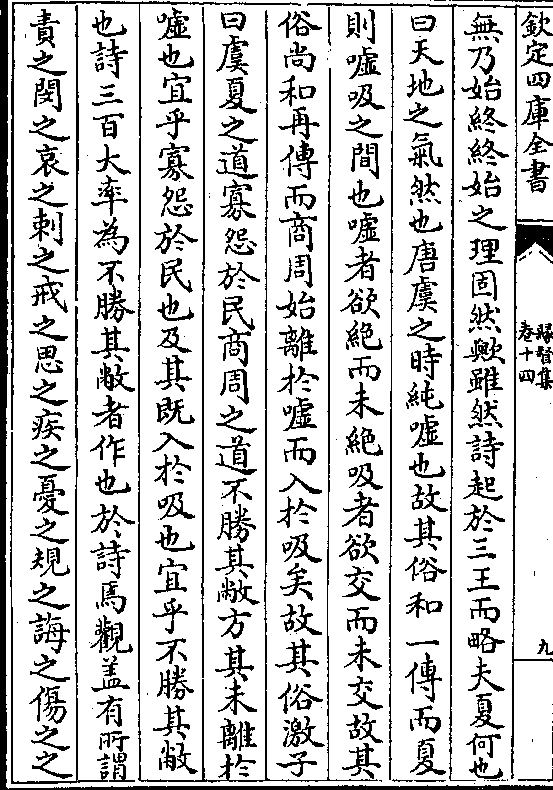 欽定四庫全書
豫章集
卷十四
九
無乃始終終始之理固然歟雖然詩起於三王而略夫夏何也
曰天地之氣然也唐虞之時純噓也故其俗和一傳而夏
則噓吸之間也噓者欲絶而未絶吸者欲交而未交故其
俗尚和再傳而商周始離於噓而入於吸矣故其俗激子
曰虞夏之道寡怨於民商周之道不勝其敝方其未離於
噓也宜乎寡怨於民也及其既入於吸也宜乎不勝其敝
也詩三百大率為不勝其敝者作也於詩焉觀盖有所謂
責之閔之哀之刺之戒之思之疾之憂之規之誨之傷之之